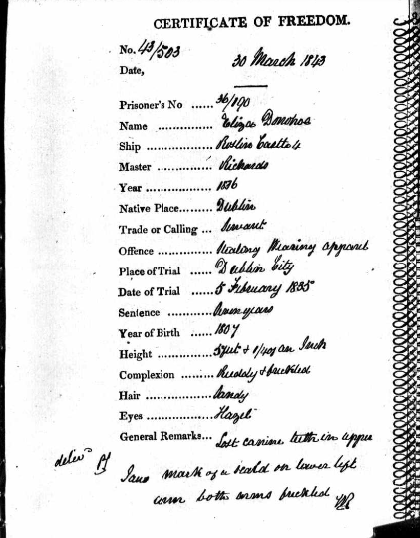 CERTIFICATE OF FREEDOM.
No. 43/503
Date, 30 March 1843
Prisoner's No ...... 36/890
Name ............... Eliza Donohoe
Ship ................. Roslin Castle
Master .............. Richards
Year ................. 1836
Native Place......... Dublin
Trade or Calling ... Servant
Offence .............. Stealing Wearing apparel
Place of Trial ...... Dublin City
Date of Trial ...... 5 February 1835
Sentence ............ Seven years
Year of Birth ...... 1807
Height ............... 5 feet & 1/4 of an Inch
Complexion ......... Ruddy & freckled
Hair .................. Sandy
Eyes .................. Hazel
General Remarks... Lost canine tooth in upper
Jaw mark of a scald on lower left
arm both arms freckled